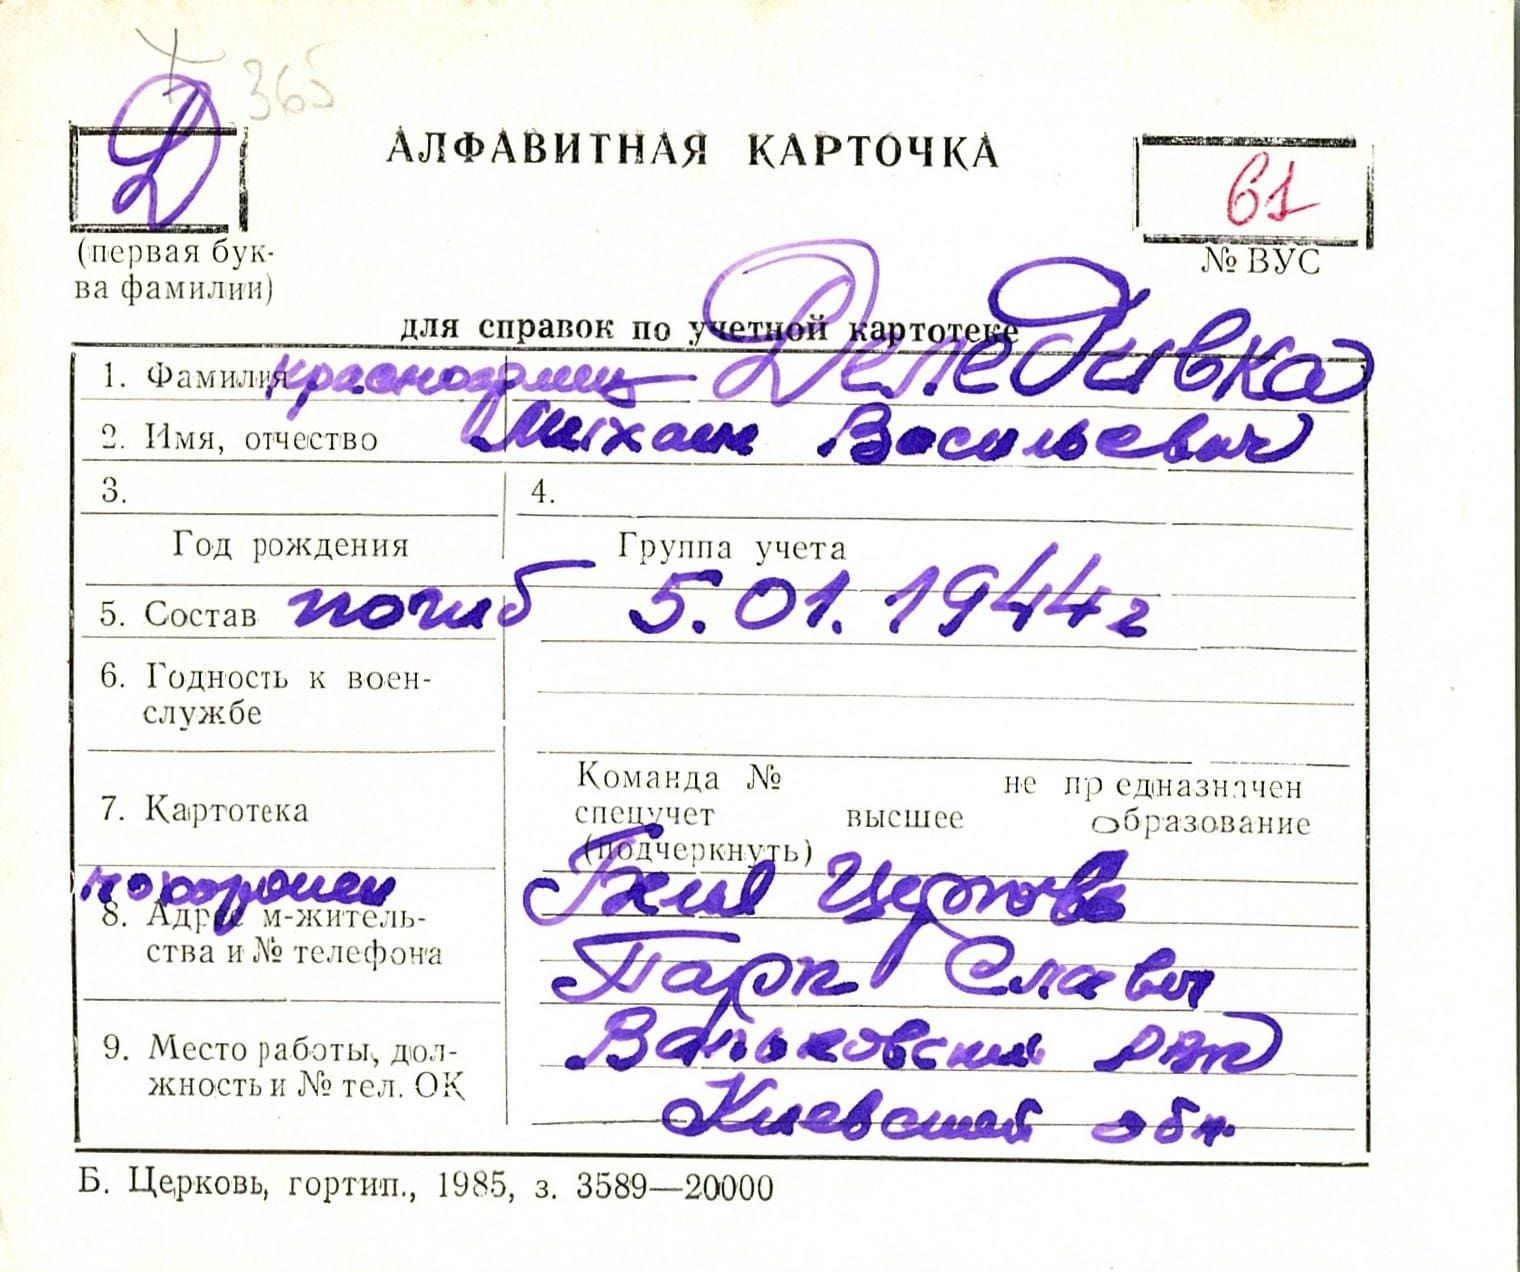 365
Д
АЛФАВИТНАЯ КАРТОЧКА
61
(первая бук-
ва фамилии)
№ ВУС
для справок по учетной картотеке
1. Фамилия красноармец Деледивка
2. Имя, отчество Михаил Васильевич
3. 4.
Год рождения Группа учета
5. Состав погиб 5.01.1944г
6. Годность к воен-
службе
Команда № не предназначен
7. Картотека спецучет высшее образование
(подчеркнуть)
похоронен Белая Церковь
8. Адрес м-житель-
ства и № телефона Парк Славы
9. Место работы, дол- РВК
жность и № тел. ОК Киевской обл.
Б. Церковь, гортип., 1985, з. 3589—20000